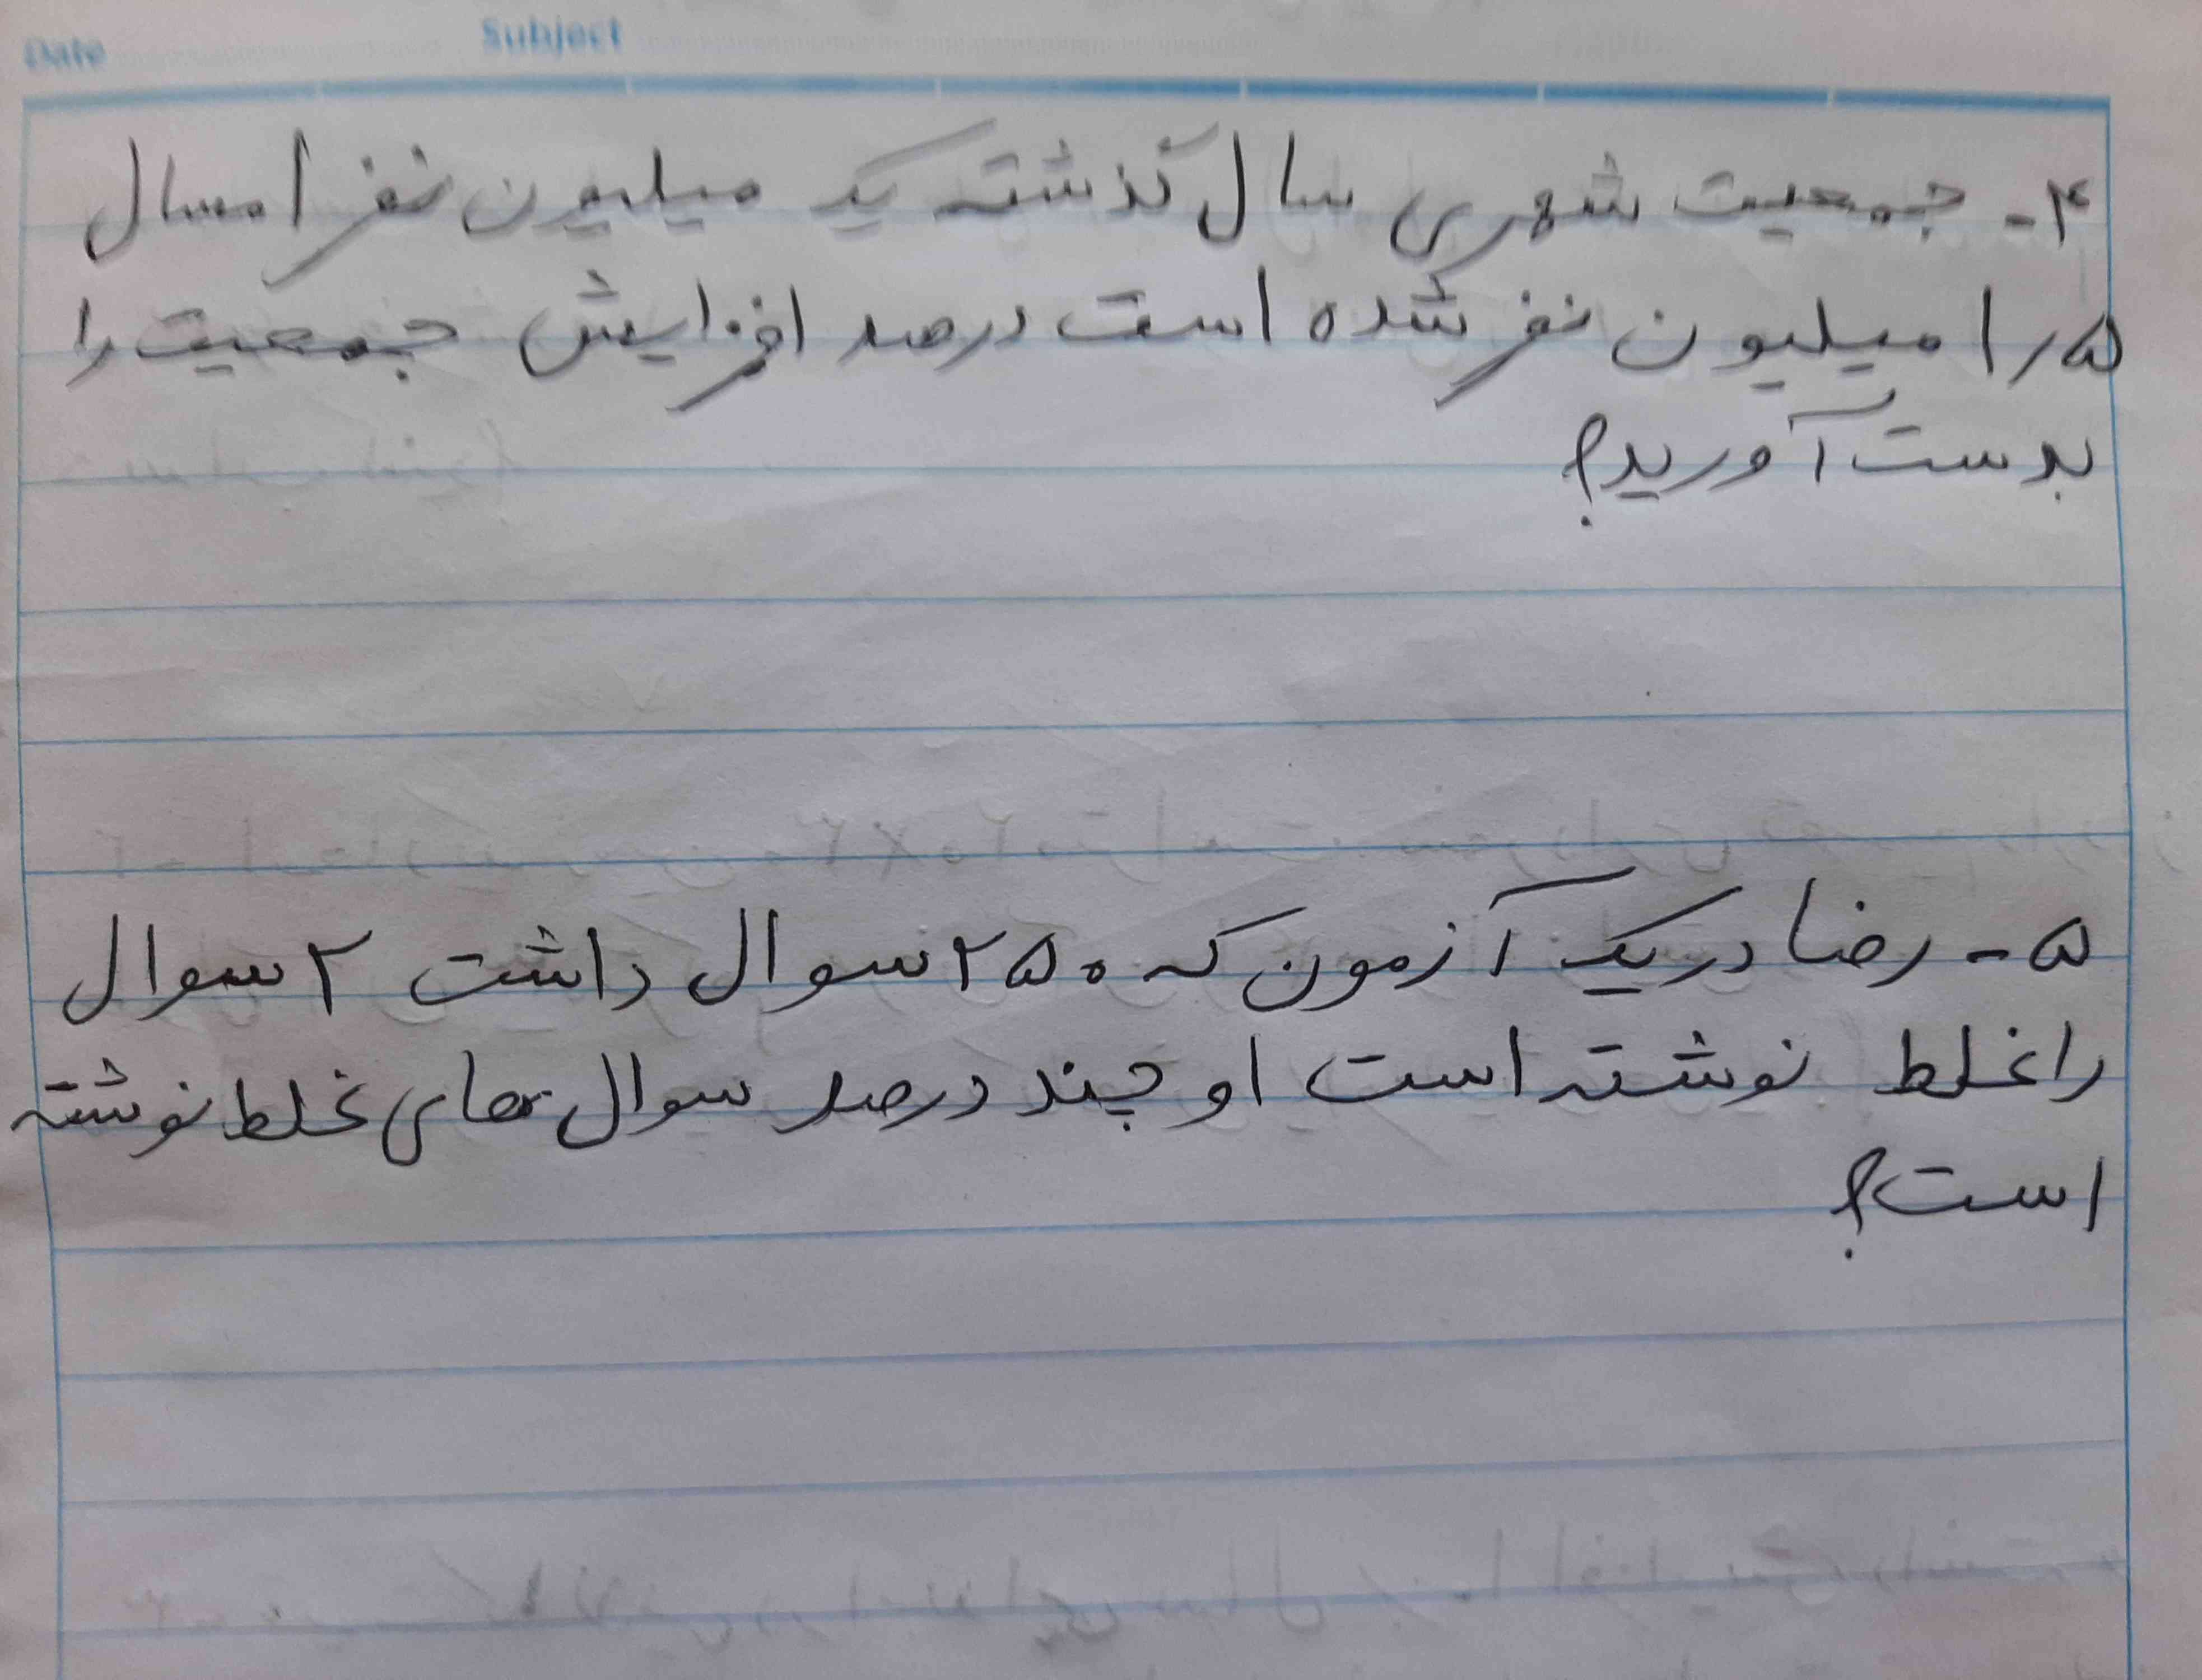 Date Subject
۴- جمعیت شهری سال گذشته یک میلیون نفر امسال
۱٫۵ میلیون نفر شده است درصد افزایش جمعیت را
بدست آورید؟
۵- رضا در یک آزمون که ۲۵۰ سوال داشت ۲ سوال
را غلط نوشته است او چند درصد سوال های غلط نوشته
است؟